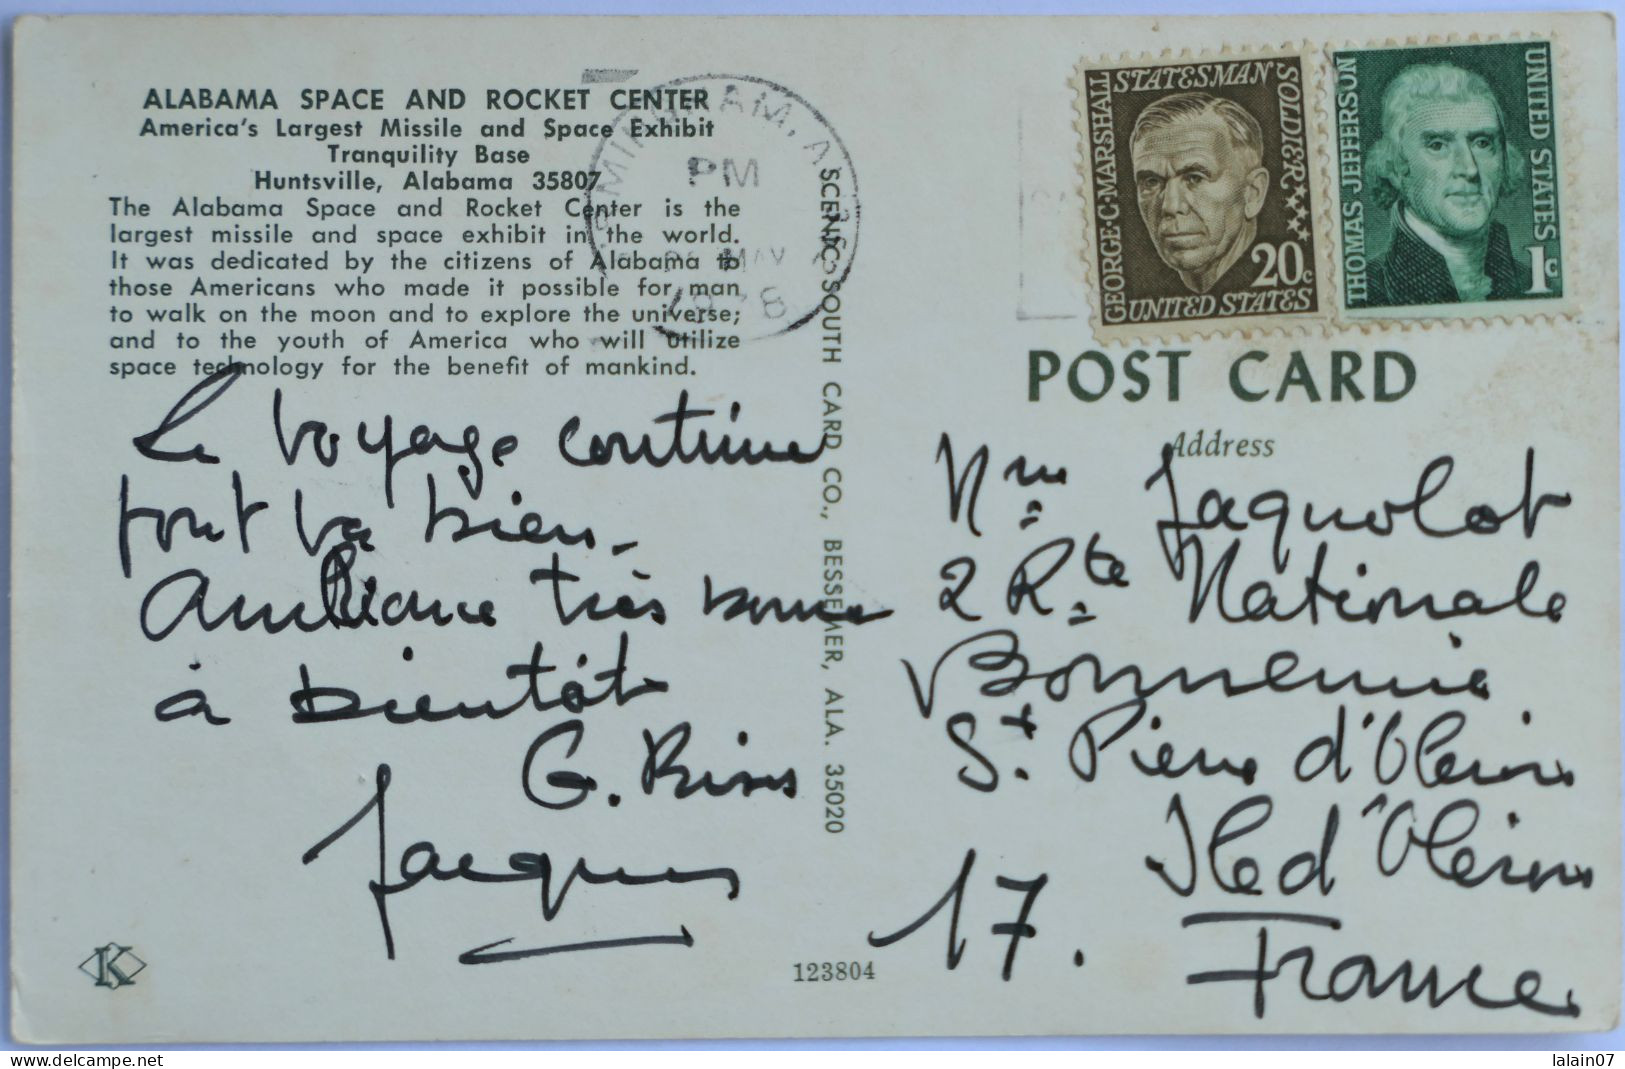 ALABAMA SPACE AND ROCKET CENTER
America's Largest Missile and Space Exhibit
Tranquility Base
Huntsville, Alabama 35807
The Alabama Space and Rocket Center is the
largest missile and space exhibit in the world.
It was dedicated by the citizens of Alabama to
those Americans who made it possible for man
to walk on the moon and to explore the universe;
and to the youth of America who will utilize
space technology for the benefit of mankind.
Le voyage continue
tout va bien.
Ambiance très bonne
à bientôt
G. Bises
Jacques
K
123804
SCENIC SOUTH CARD CO., BESSEMER, ALA. 35020
PM
MAY
GEORGE C. MARSHALL
STATESMAN
SOLDIER
20c
UNITED STATES
THOMAS JEFFERSON
UNITED STATES
1c
POST CARD
Address
Mme Jaquolot
2 Rte Nationale
Bonnemie
St. Pierre d'Oléron
Ile d'Oléron
17.
France
www.delcampe.net
lalain07